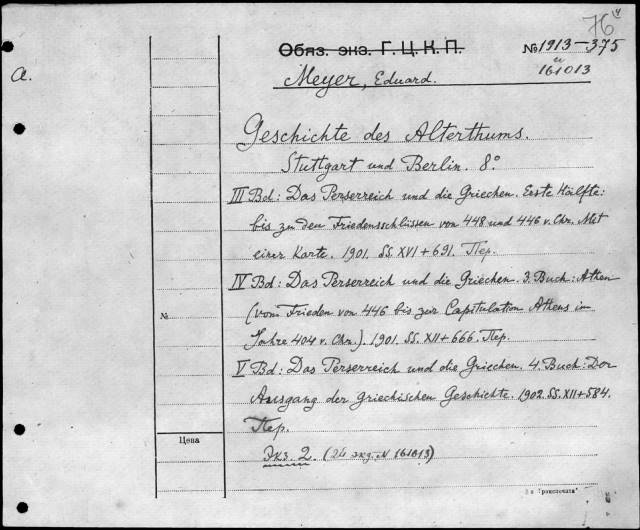 76
Обяз. экз. Г. Ц. К. П.
№ 1913-375
и
161013
a.
Meyer, Eduard.
Geschichte des Alterthums.
Stuttgart und Berlin. 8°.
III Bd: Das Perserreich und die Griechen. Erste Hälfte:
bis zu den Friedensschlüssen von 448 und 446 v. Chr. Mit
einer Karte. 1901. SS. XVI+691. Пер.
IV Bd: Das Perserreich und die Griechen. 3. Buch: Athen
(vom Frieden von 446 bis zur Capitulation Athens im
Jahre 404 v. Chr.). 1901. SS. XII+666. Пер.
V Bd: Das Perserreich und die Griechen. 4. Buch: Der
Ausgang der Griechischen Geschichte. 1902. SS. XII+584.
Пер.
Экз. 2. (2й экз. № 161013)
№
Цена